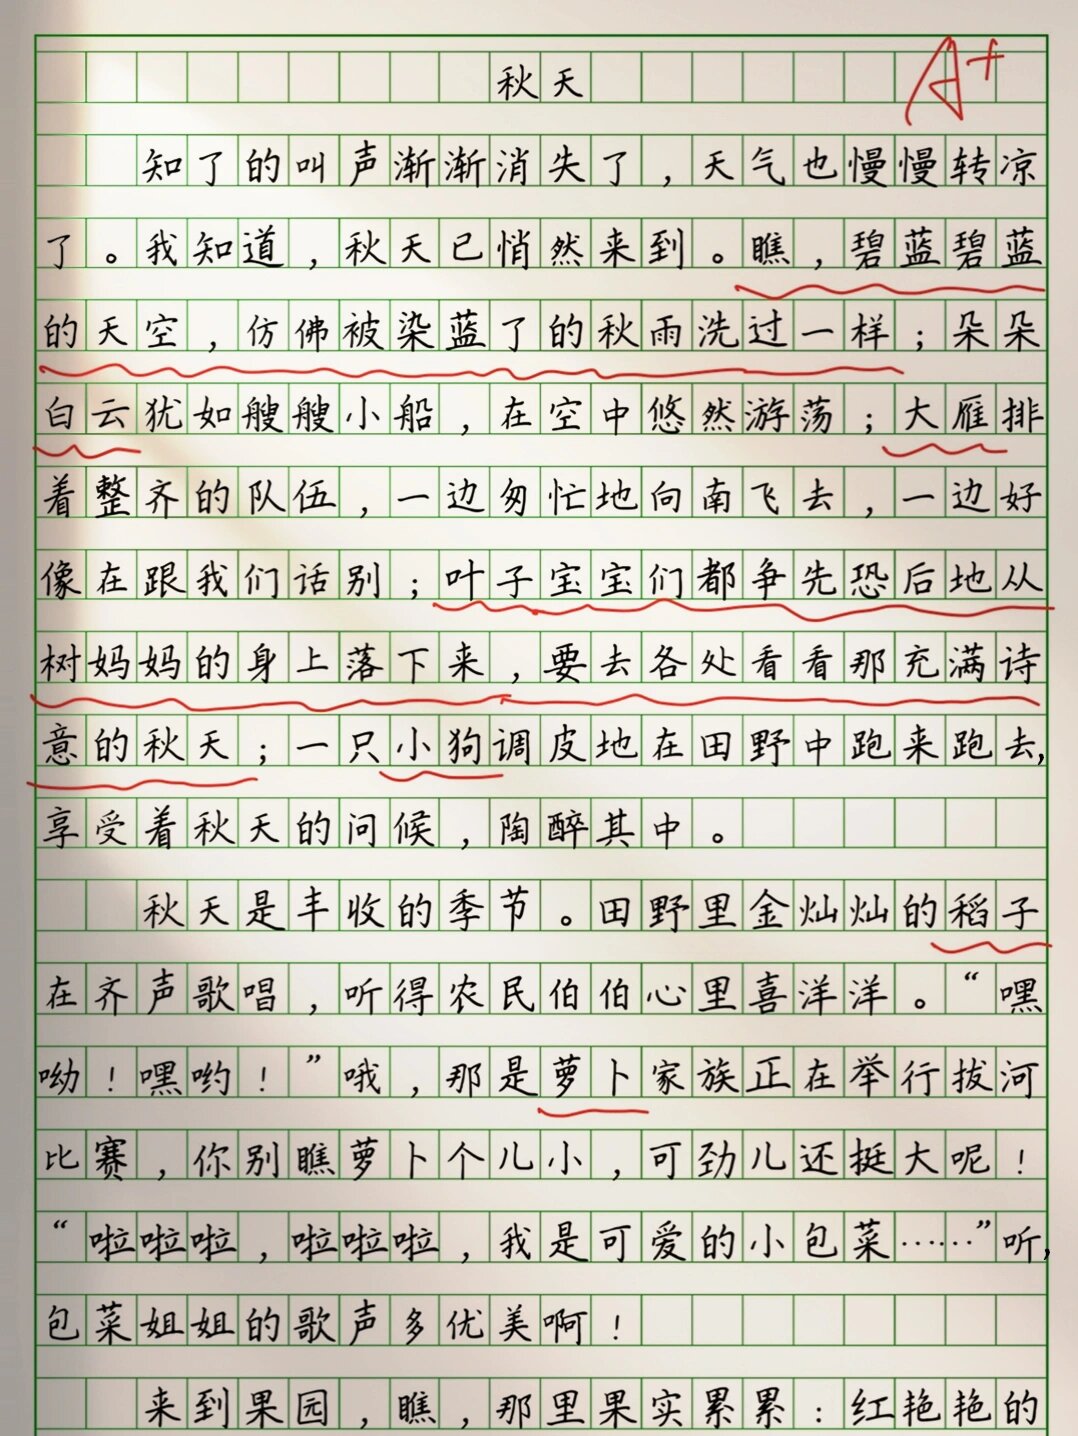 秋天
A+
知了的叫声渐渐消失了，天气也慢慢转凉
了。我知道，秋天已悄然来到。瞧，碧蓝碧蓝
的天空，仿佛被染蓝了的秋雨洗过一样；朵朵
白云犹如艘艘小船，在空中悠然游荡；大雁排
着整齐的队伍，一边匆忙地向南飞去，一边好
像在跟我们话别；叶子宝宝们都争先恐后地从
树妈妈的身上落下来，要去各处看看那充满诗
意的秋天；一只小狗调皮地在田野中跑来跑去，
享受着秋天的问候，陶醉其中。
秋天是丰收的季节。田野里金灿灿的稻子
在齐声歌唱，听得农民伯伯心里喜洋洋。“嘿
呦！嘿哟！”哦，那是萝卜家族正在举行拔河
比赛，你别瞧萝卜个儿小，可劲儿还挺大呢！
“啦啦啦，啦啦啦，我是可爱的小包菜……”听，
包菜姐姐的歌声多优美啊！
来到果园，瞧，那里果实累累：红艳艳的